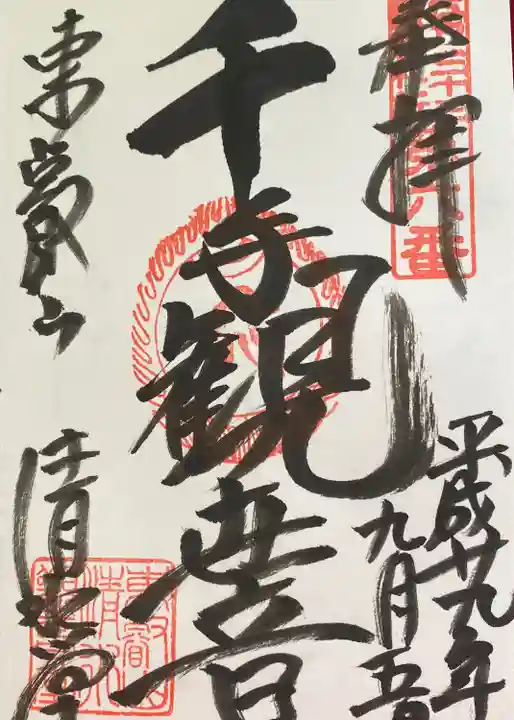 奉拝
六番
平成廿九年
九月五日
千手観世音
東叡山
清水堂